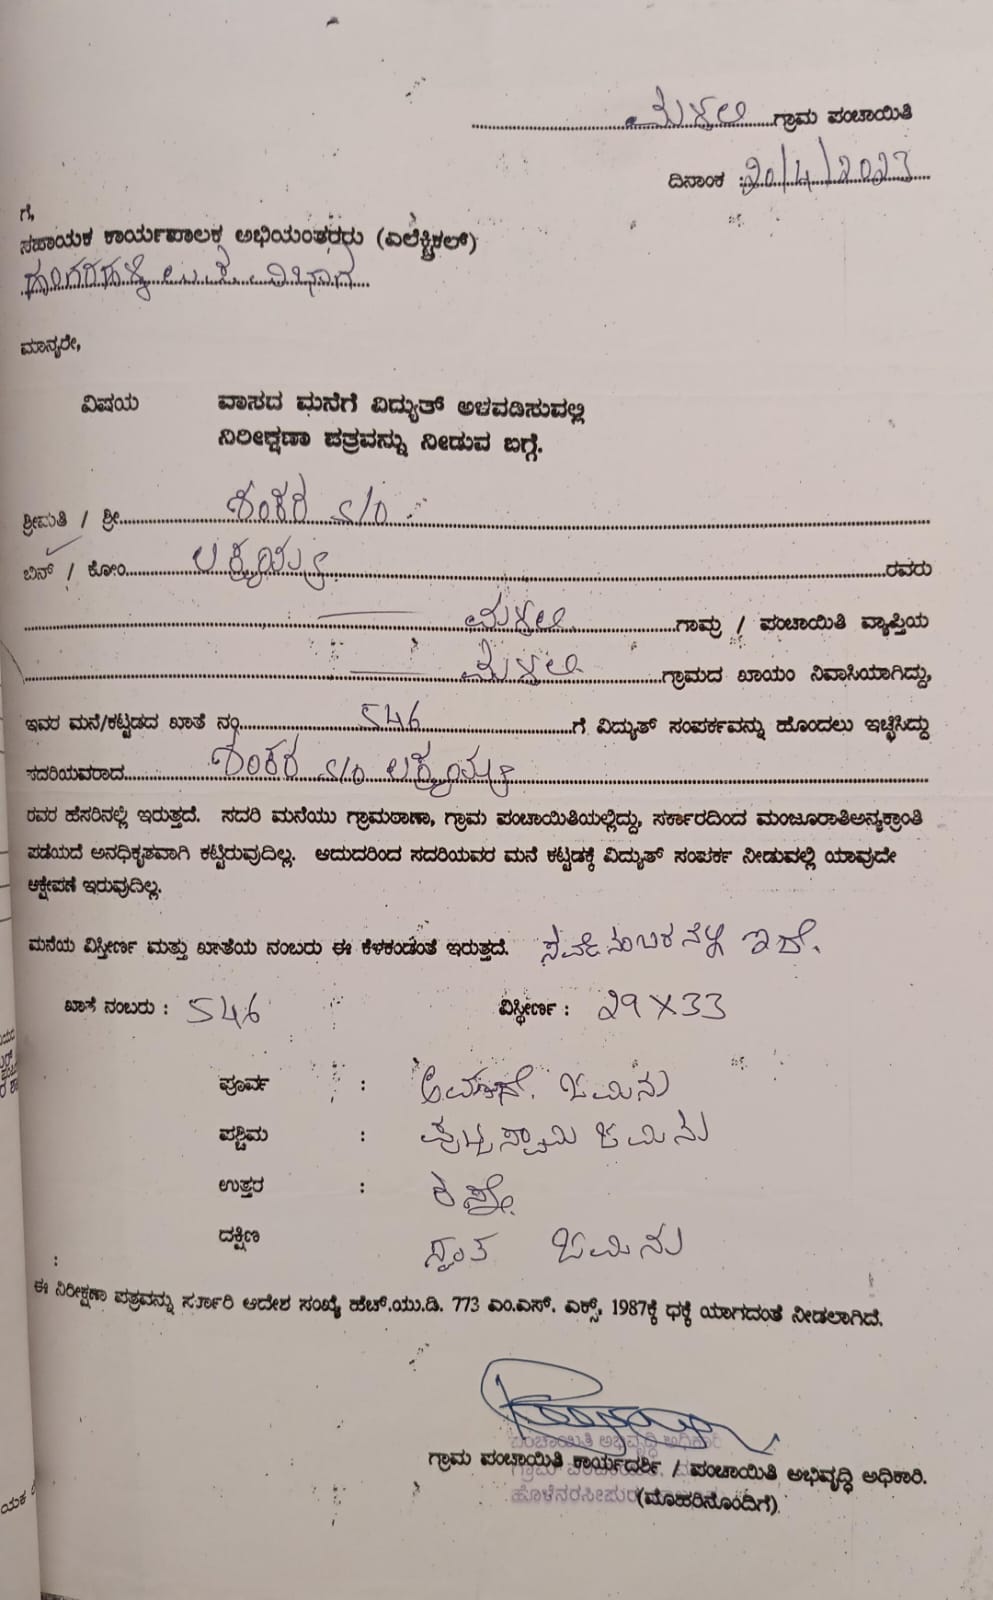 ಮಳಲಿ ಗ್ರಾಮ ಪಂಚಾಯಿತಿ
ದಿನಾಂಕ :20/4/2023
ಗೆ,
ಸಹಾಯಕ ಕಾರ್ಯಪಾಲಕ ಅಭಿಯಂತರರು (ಎಲೆಕ್ಟ್ರಿಕಲ್)
ವಿಭಾಗ
ಮಾನ್ಯರೇ,
ವಿಷಯ ವಾಸದ ಮನೆಗೆ ವಿದ್ಯುತ್ ಅಳವಡಿಸುವಲ್ಲಿ
ನಿರೀಕ್ಷಣಾ ಪತ್ರವನ್ನು ನೀಡುವ ಬಗ್ಗೆ.
ಶ್ರೀಮತಿ / ಶ್ರೀ ಶಂಕರ S/O
ಬಿನ್ / ಕೋಂ ಲಕ್ಕಯ್ಯ ರವರು
ಮಳಲಿ ಗ್ರಾಮ / ಪಂಚಾಯಿತಿ ವ್ಯಾಪ್ತಿಯ
ಮಳಲಿ ಗ್ರಾಮದ ಖಾಯಂ ನಿವಾಸಿಯಾಗಿದ್ದು,
ಇವರ ಮನೆ/ಕಟ್ಟಡದ ಖಾತೆ ನಂ 546 ಗೆ ವಿದ್ಯುತ್ ಸಂಪರ್ಕವನ್ನು ಹೊಂದಲು ಇಚ್ಛಿಸಿದ್ದು
ಸದರಿಯವರಾದ ಶಂಕರ S/O ಲಕ್ಕಯ್ಯ
ರವರ ಹೆಸರಿನಲ್ಲಿ ಇರುತ್ತದೆ. ಸದರಿ ಮನೆಯು ಗ್ರಾಮಠಾಣಾ, ಗ್ರಾಮ ಪಂಚಾಯಿತಿಯಲ್ಲಿದ್ದು, ಸರ್ಕಾರದಿಂದ ಮಂಜೂರಾತಿಅನ್ಯಕ್ರಾಂತಿ
ಪಡೆಯದೆ ಅನಧಿಕೃತವಾಗಿ ಕಟ್ಟಿರುವುದಿಲ್ಲ. ಆದುದರಿಂದ ಸದರಿಯವರ ಮನೆ ಕಟ್ಟಡಕ್ಕೆ ವಿದ್ಯುತ್ ಸಂಪರ್ಕ ನೀಡುವಲ್ಲಿ ಯಾವುದೇ
ಆಕ್ಷೇಪಣೆ ಇರುವುದಿಲ್ಲ.
ಮನೆಯ ವಿಸ್ತೀರ್ಣ ಮತ್ತು ಖಾತೆಯ ನಂಬರು ಈ ಕೆಳಕಂಡಂತೆ ಇರುತ್ತದೆ.
ಖಾತೆ ನಂಬರು : 546 ವಿಸ್ತೀರ್ಣ : 29X33
ಪೂರ್ವ : ಜಮೀನು
ಪಶ್ಚಿಮ : ಪುಟ್ಟಸ್ವಾಮಿ ಜಮೀನು
ಉತ್ತರ : ರಸ್ತೆ
ದಕ್ಷಿಣ ಸ್ವಂತ ಜಮೀನು
ಈ ನಿರೀಕ್ಷಣಾ ಪತ್ರವನ್ನು ಸರ್ಕಾರಿ ಆದೇಶ ಸಂಖ್ಯೆ ಹೆಚ್.ಯು.ಡಿ. 773 ಎಂ.ಎಸ್. ಎಕ್ಸ್, 1987ಕ್ಕೆ ಧಕ್ಕೆ ಯಾಗದಂತೆ ನೀಡಲಾಗಿದೆ.
ಪಂಚಾಯಿತಿ ಅಭಿವೃದ್ಧಿ ಅಧಿಕಾರಿ
ಗ್ರಾಮ ಪಂಚಾಯಿತಿ ಕಾರ್ಯದರ್ಶಿ / ಪಂಚಾಯಿತಿ ಅಭಿವೃದ್ಧಿ ಅಧಿಕಾರಿ.
ಹೊಳೆನರಸೀಪುರ (ಮೊಹರಿನೊಂದಿಗೆ)